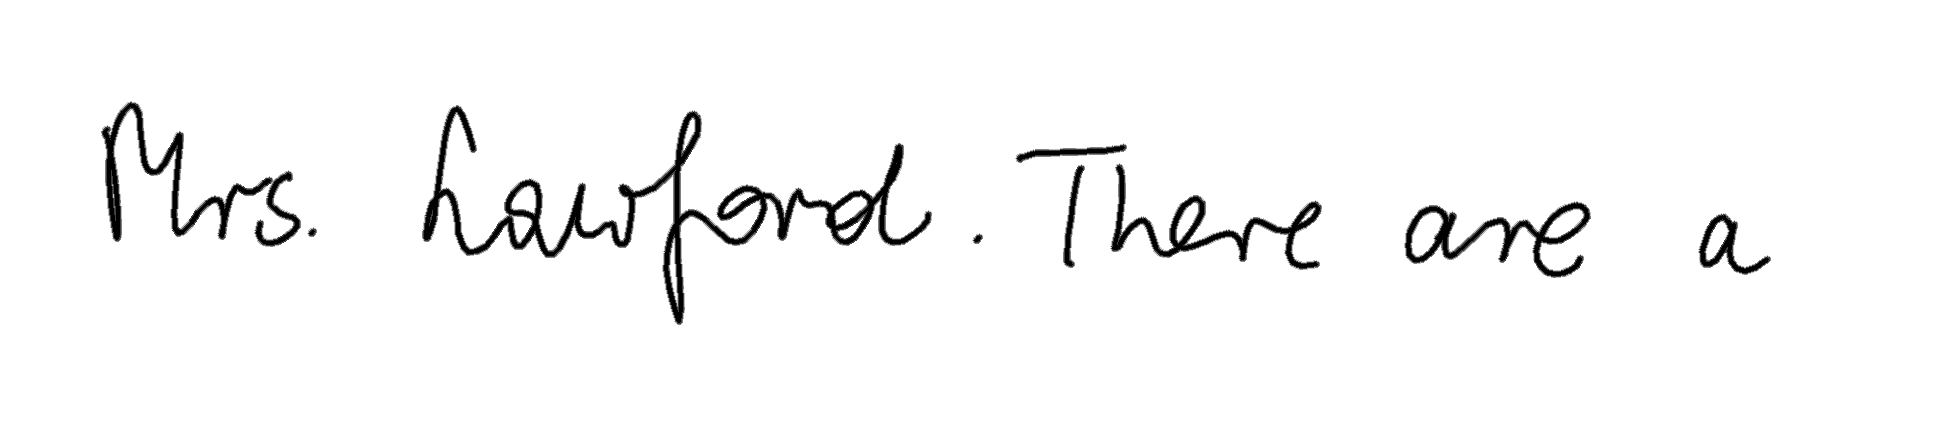 Mrs. Lawford. There are a